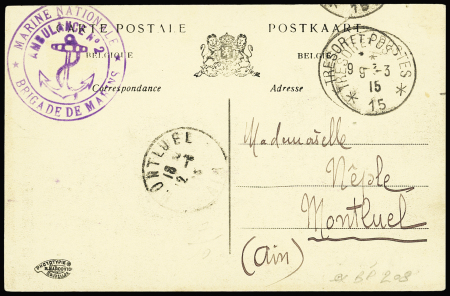 CARTE POSTALE
POSTKAART
BELGIQUE
BELGIË
Correspondance
Adresse
MARINE NATIONALE
AMBULANCE No 2
BRIGADE DE MARINS
TRESOR ET POSTES
9 3-3
15
* 15 *
MONTLUEL
Mademoiselle
Nêple
Montluel
(Ain)
PHOTOTYPIE
BRUXELLES